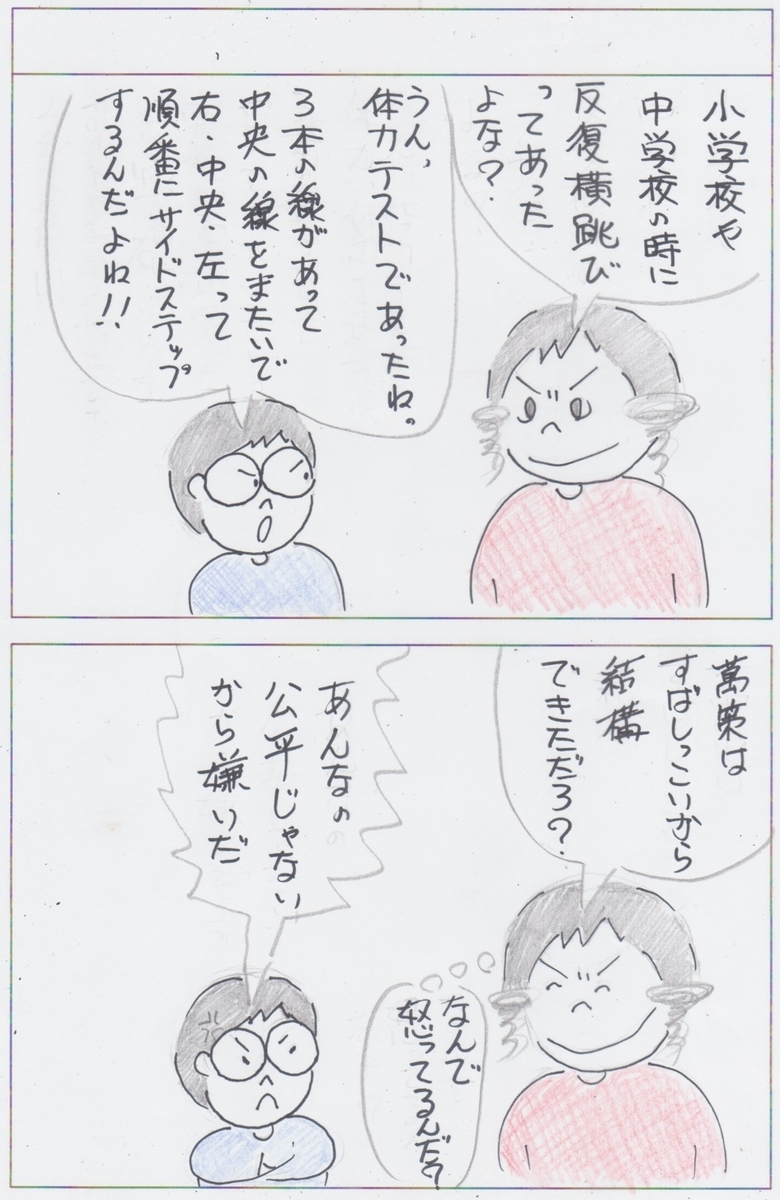 小学校や
中学校の時に
反復横跳び
ってあった
よな？
うんっ
体力テストであったね。
3本の線があって
中央の線をまたいで
右・中央・左って
順番にサイドステップ
するんだよね!!
萬策は
すばしっこいから
結構
できただろ？
なんで
怒ってるんだ？
あんなの
公平じゃない
から嫌いだ